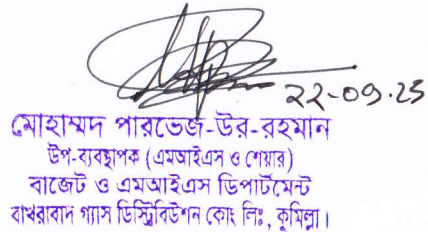 ২২-০১.২৫
মোহাম্মদ পারভেজ-উর-রহমান
উপ-ব্যবস্থাপক (এমআইএস ও শেয়ার)
বাজেট ও এমআইএস ডিপার্টমেন্ট
বাখরাবাদ গ্যাস ডিস্ট্রিবিউশন কোং লিঃ, কুমিল্লা।